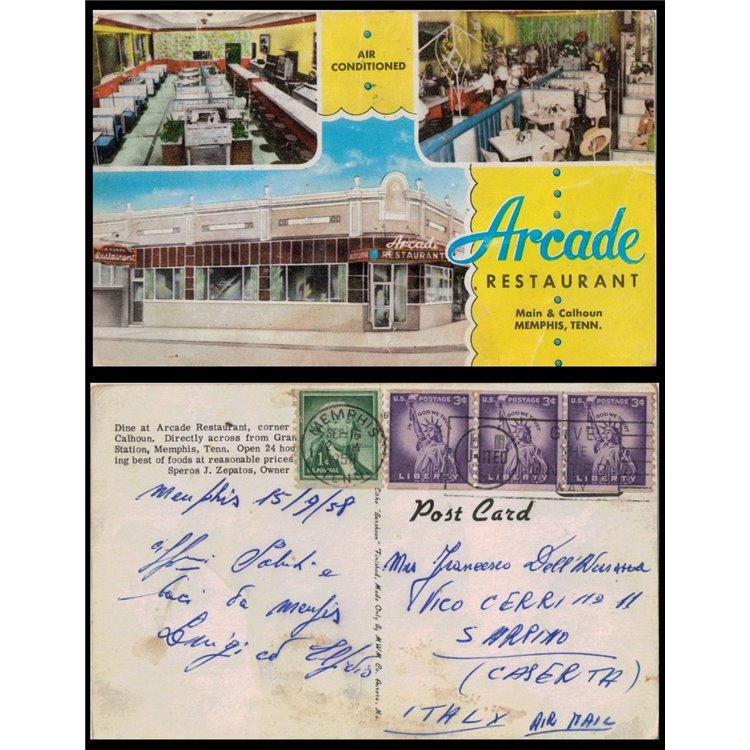 AIR
CONDITIONED
Arcade
RESTAURANT
Main & Calhoun
MEMPHIS, TENN.
Restaurant
Arcade
RESTAURANT
Dine at Arcade Restaurant, corner
Calhoun. Directly across from Gran
Station, Memphis, Tenn. Open 24 hou
ing best of foods at reasonable prices
Speros J. Zepatos, Owner
MEMPHIS
SEP 16
1958
TENN
U.S. POSTAGE 3¢
IN GOD WE TRUST
LIBERTY
U.S. POSTAGE 3¢
IN GOD WE TRUST
LIBERTY
U.S. POSTAGE 3¢
IN GOD WE TRUST
LIBERTY
GIVE
THE
UNITED
WAY
Post Card
Memphis 15/9/58
Saluti e
baci da Menfis
Luigi ed
Genuine "Curteich" Finished. Made Only By M.W.M. Co. Aurora, Mo.
Francesco Dell'
VICO CERRI nº 11
(CASERTA)
ITALY AIR MAIL